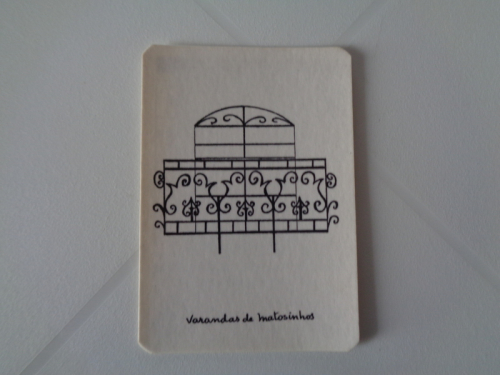 Varandas de Matosinhos